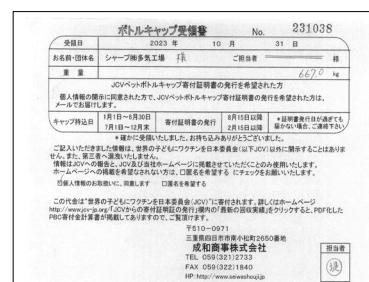 ボトルキャップ受領書 No. 231038
受領日 2023 年 10 月 31 日
お名前・団体名 シャープ㈱多気工場 様 ご担当者 様
重 量 667.0 kg
JCVペットボトルキャップ寄付証明書の発行を希望された方
個人情報の開示に同意された方で、JCVペットボトルキャップ寄付証明書の発行を希望された方は、
メールでお届けします。
キャップ持込日 1月1日~6月30日 寄付証明書の発行 8月15日以降 *証明書発行日が過ぎても
7月1日~12月末 2月15日以降 届かない場合、ご連絡下さい
*確かに受領いたしました。お持ち込みありがとうございました。
ご記入いただきました情報は、世界の子どもにワクチンを日本委員会(以下JCV)以外に開示することはありま
せん。また、第三者へ漏洩いたしません。
情報はJCVへの報告と、JCV及び当社ホームページに掲載させていただくことのみ使用いたします。
ホームページへの掲載を希望なされない方は、□匿名を希望する にチェックをお願いいたします。
☑個人情報のお取扱いに、同意します □匿名を希望する
この代金は"世界の子どもにワクチンを日本委員会(JCV)"に寄付されます。詳しくはホームページ
http://www.jcv-jp.org/「JCVからの寄付証明証の発行」欄内の「最新の回収実績」をクリックすると、PDF化した
PBC寄付金計算書が掲載してありますので、ご覧頂けます。
〒510-0971
三重県四日市市南小松町2650番地
成和商事株式会社
TEL 059(321)2733
FAX 059(322)1840
HP:http://www.seiwashouji.jp
担当者
堤